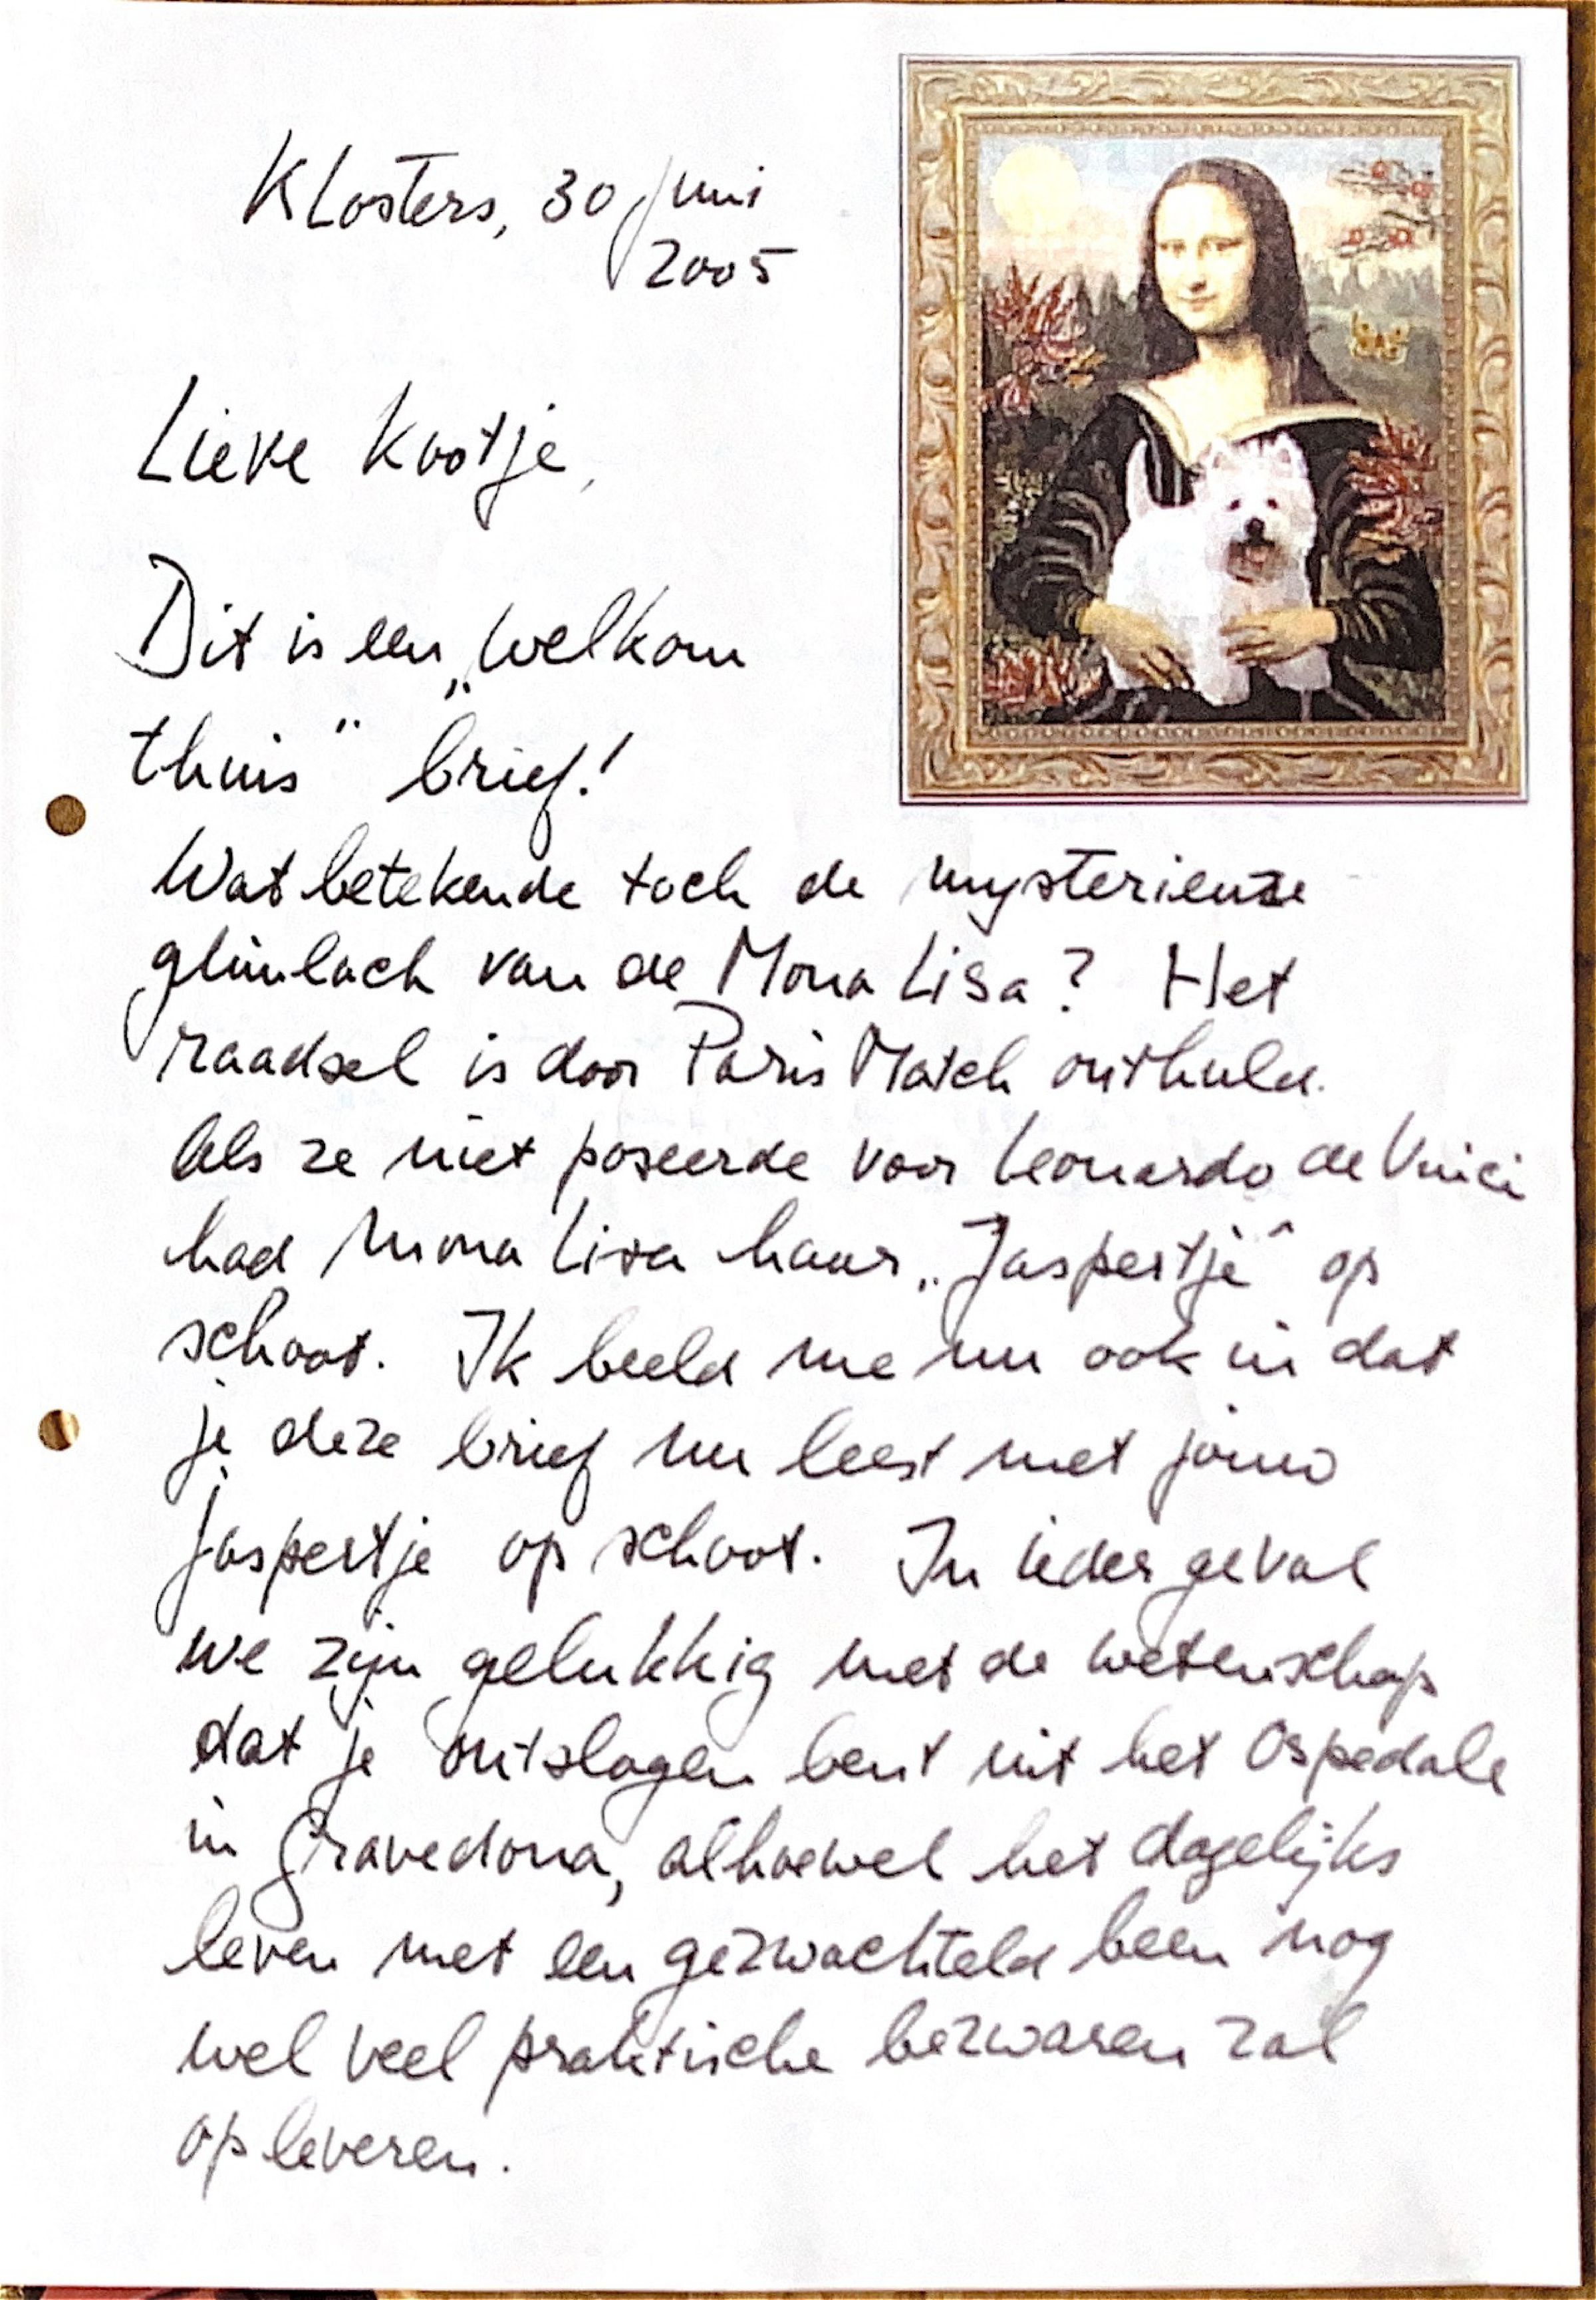 Klosters, 30 juni
2005
Lieve Kootje,
Dit is een „welkom
thuis" brief!
Wat betekende toch de mysterieuze
glimlach van de Mona Lisa? Het
raadsel is door Paris Match onthuld.
Als ze niet poseerde voor Leonardo de Vinci
had Mona Lisa haar „Jaspertje" op
schoot. Ik beeld me nu ook in dat
je deze brief nu leest met jouw
Jaspertje op schoot. In ieder geval
we zijn gelukkig met de wetenschap
dat je ontslagen bent uit het Ospedale
in Gravedona, alhoewel het dagelijks
leven met een gezwachteld been nog
wel veel praktische bezwaren zal
opleveren.